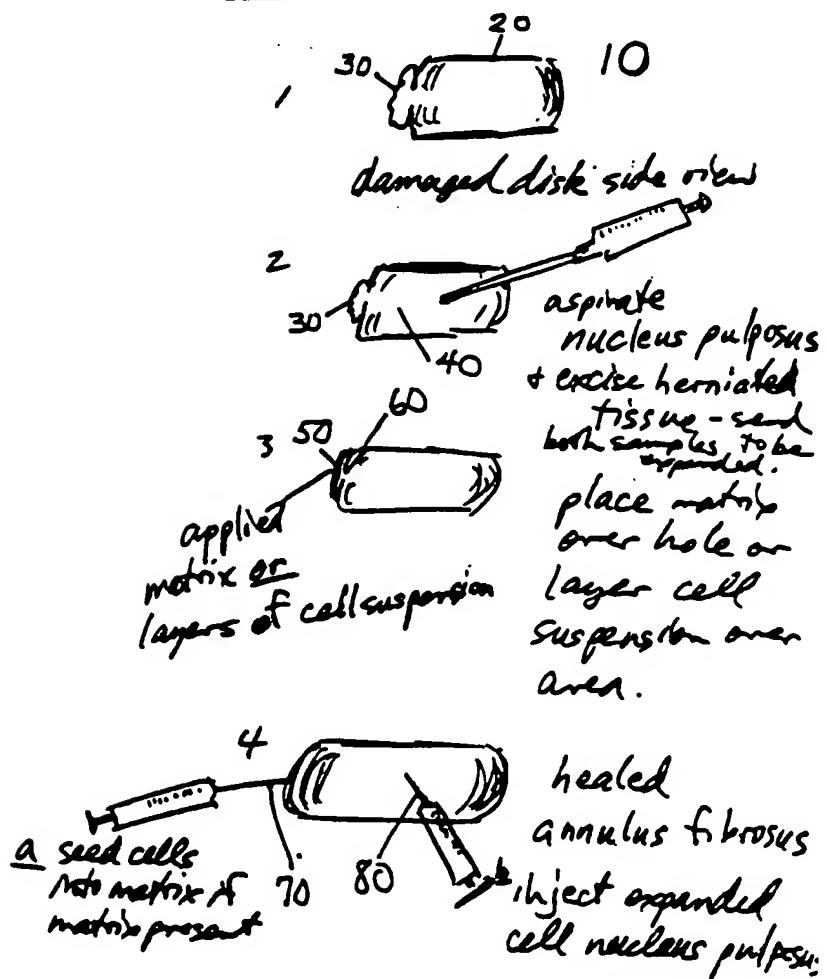 20
30
10
1
damaged disk side view
2
30
40
aspirate
nucleus pulposus
+ excise herniated
tissue - send
both samples to be
expanded.
60
3 50
applied
matrix or
layers of cell suspension
place matrix
over hole or
layer cell
suspension over
area.
4
healed
annulus fibrosus
a seed cells
into matrix if
matrix present
70
80
b
inject expanded
cell nucleus pulposus.